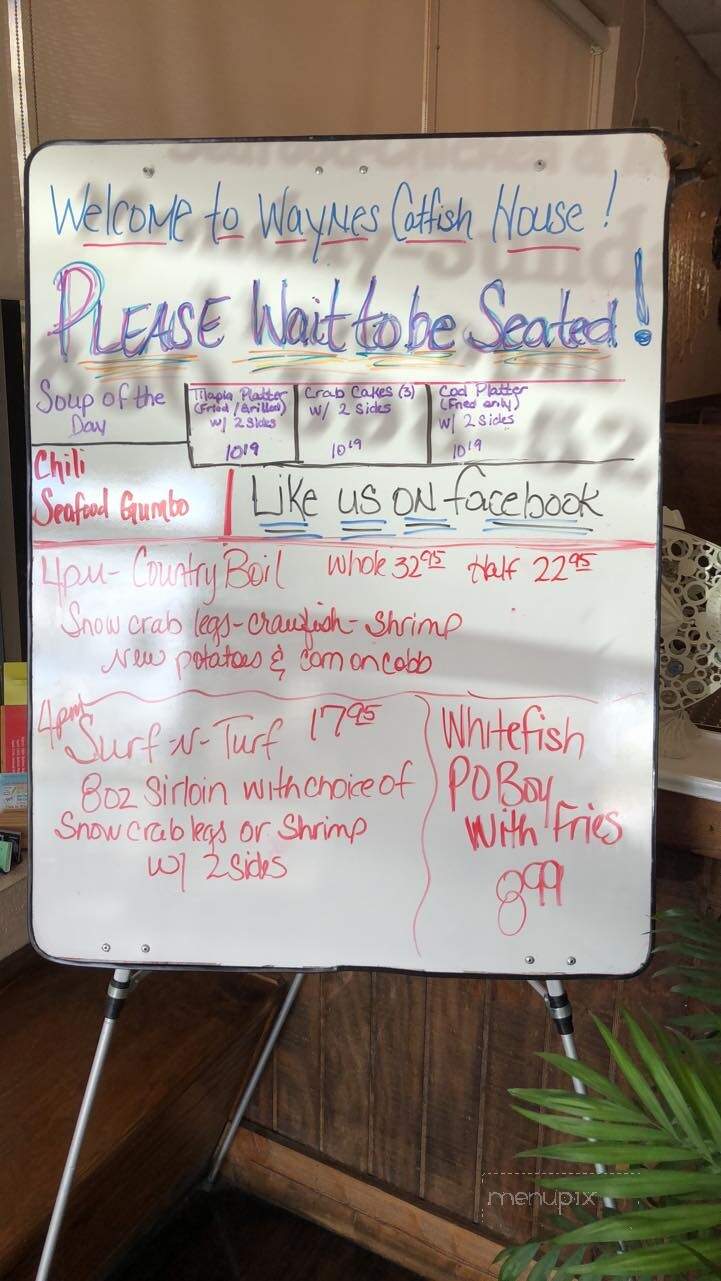 Welcome to Waynes Catfish House!
PLEASE Wait to be Seated!
Soup of the
Day
Tilapia Platter
(Fried/Grilled)
w/ 2 sides
10.19
Crab Cakes (3)
w/ 2 sides
10.19
Cod Platter
(Fried only)
w/ 2 sides
10.19
Chili
Seafood Gumbo
Like us on facebook
4pm- Country Boil Whole 32.95 Half 22.95
Snow crab legs-crawfish-Shrimp
New potatoes & corn on cobb
4pm
Surf-N-Turf 17.95
8oz Sirloin with choice of
Snow crab legs or Shrimp
w/ 2 sides
Whitefish
PO Boy
With Fries
8.99
menupix